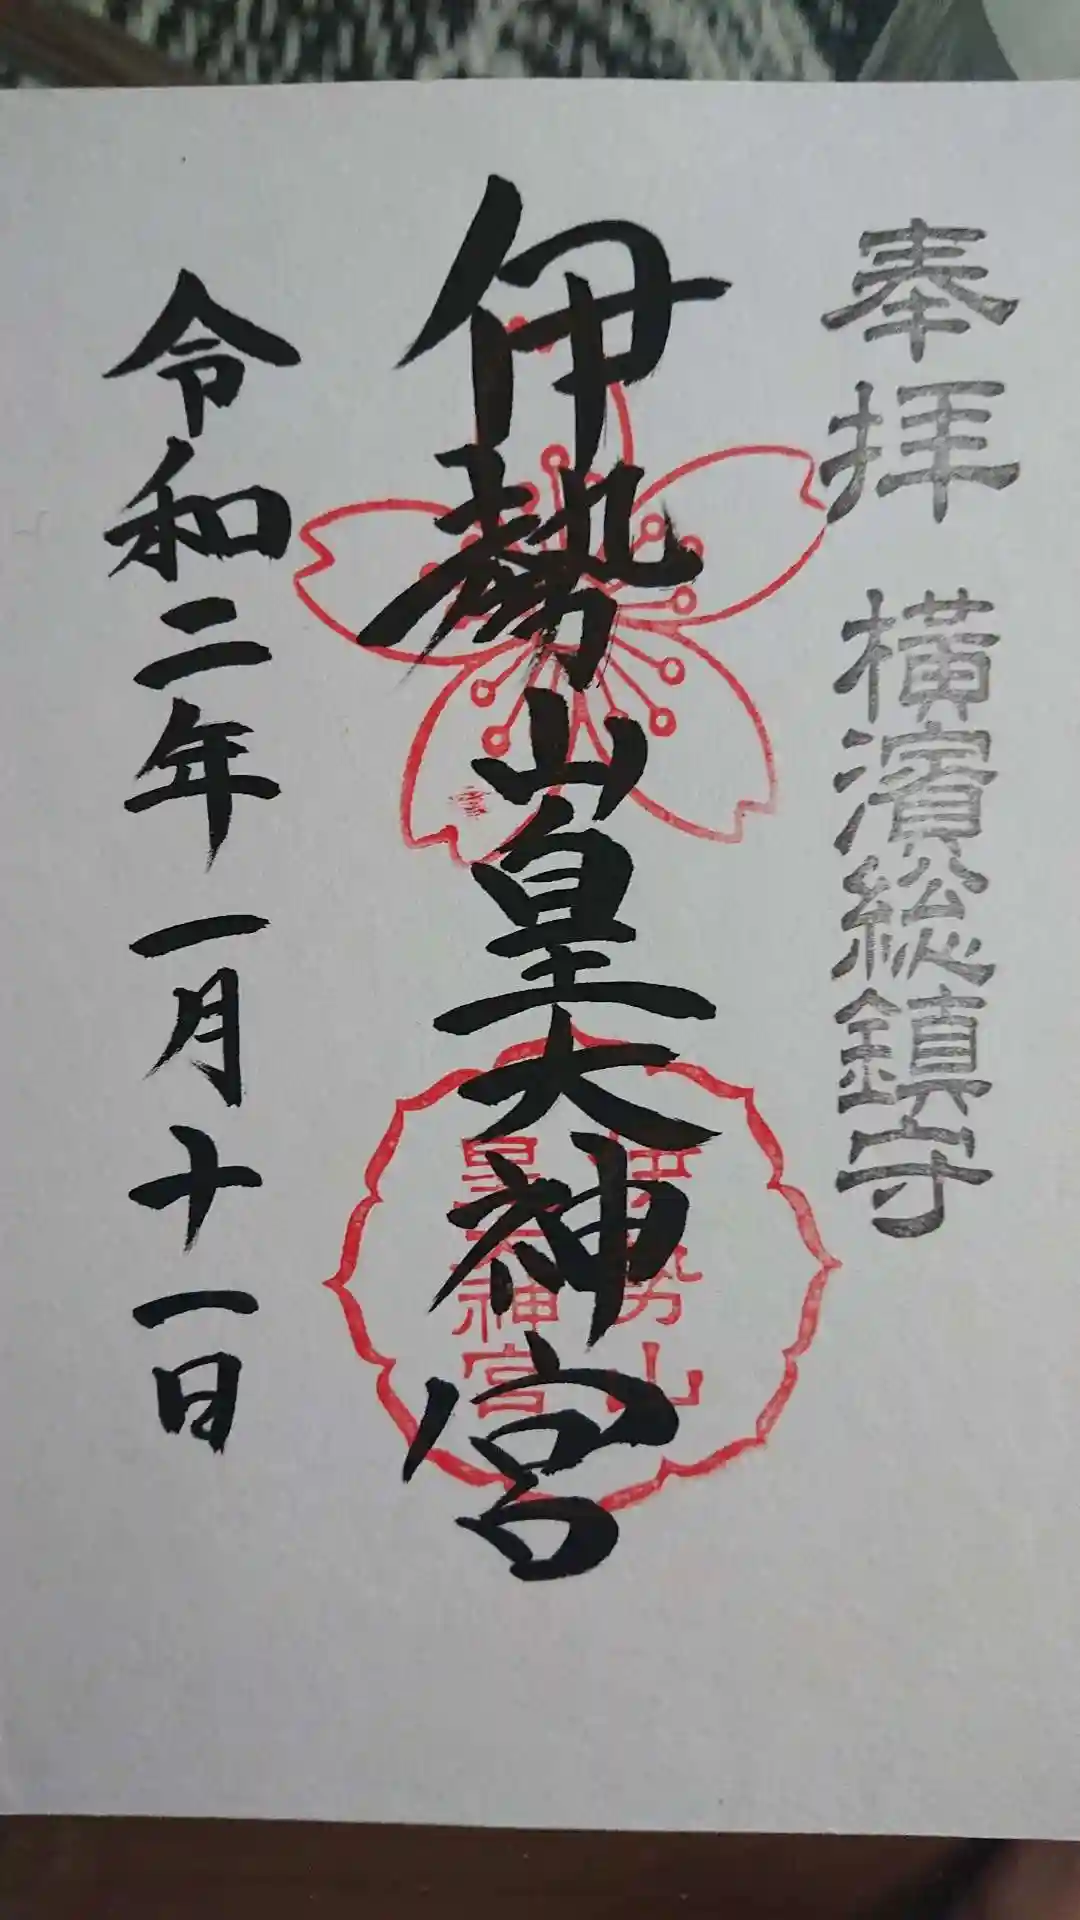 奉拝 横濱総鎮守
伊勢山皇大神宮
伊勢山
皇大神宮
令和二年一月十一日